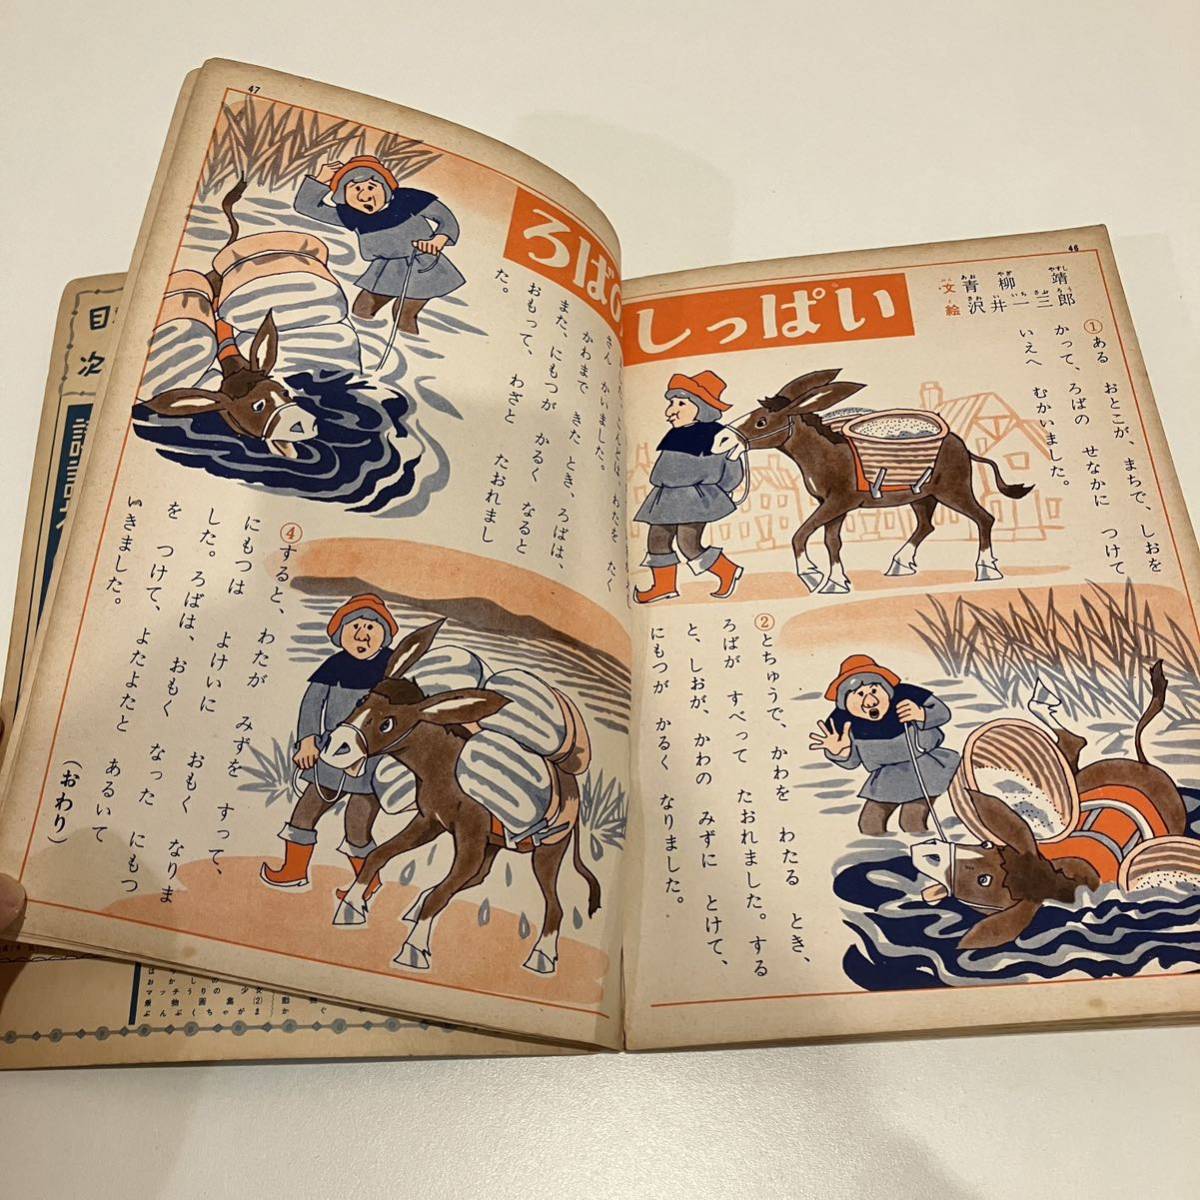 46
ろばの しっぱい
文 青柳 靖
絵 沢井一三郎
①ある おとこが、まちで、しおを
かって、ろばの せなかに つけて
いえへ むかいました。
②とちゅうで、かわを わたる とき、
ろばが すべって たおれました。する
と、しおが、かわの みずに とけて、
にもつが かるく なりました。
47
こんどは、わたを たく
さん かいました。
かわまで きた とき、ろばは、
また、にもつが かるく なると
おもって、わざと たおれまし
た。
④すると、わたが みずを すって、
にもつは よけいに おもく なりま
した。ろばは、おもく なった にもつ
を つけて、よたよたと あるいて
いきました。
（おわり）
目次
おかしの
マッチうりの少女
乗物画集(2) 動物
ぶんぶくちゃがま かぐ